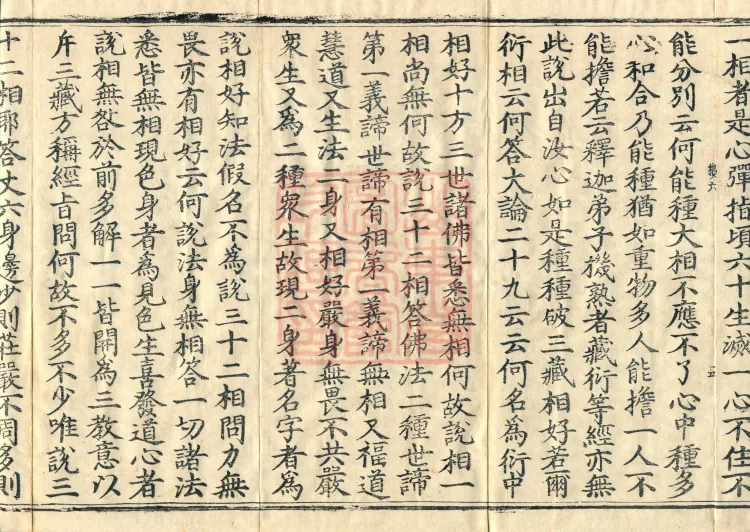 一相者是心彈指頃六十生滅一心不住不
能分別云何能種大相不應不了心中種多
心和合乃能種猶如重物多人能擔一人不
能擔若云釋迦弟子機熟者藏衍等經亦無
此說出自汝心如是種種破三藏相好若爾
衍相云何答大論二十九云云何名為衍中
相好十方三世諸佛皆悉無相何故說相一
相尚無何故說三十二相答佛法二種世諦
第一義諦世諦有相第一義諦無相又福道
慧道又生法二身又相好嚴身無畏不共嚴
眾生又為二種眾生故現二身著名字者為
說相好知法假名不為說三十二相問力無
畏亦有相好云何說法身無相答一切諸法
悉皆無相現色身者為見色生喜發道心者
說相無咎於前多解一一皆開為三教意以
斥三藏方稱經旨問何故不多不少唯說三
十二相耶答丈六身邊少則莊嚴不周多則